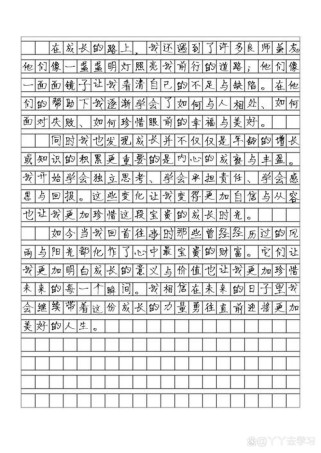 在成长的路上，我还遇到了许多良师益友
他们像一盏盏明灯照亮我前行的道路；他们像
一面面镜子让我看清自己的不足与缺陷。在他
们的帮助下我逐渐学会了如何与人相处、如何
面对失败、如何珍惜眼前的幸福与美好。
同时我也发现成长并不仅仅是年龄的增长
或知识的积累更重要的是内心的成熟与丰盈。
我开始学会独立思考、学会承担责任、学会感
恩与回报。这些变化让我变得更加自信与从容
也让我更加珍惜这段宝贵的成长时光。
如今当我回首往事时那些曾经经历过的风
雨与阳光都化作了心中最宝贵的财富。它们让
我更加明白成长的意义与价值也让我更加珍惜
未来的每一个瞬间。我相信在未来的日子里我
会继续带着这份成长的力量勇往直前迎接更加
美好的人生。
@丫丫击学习